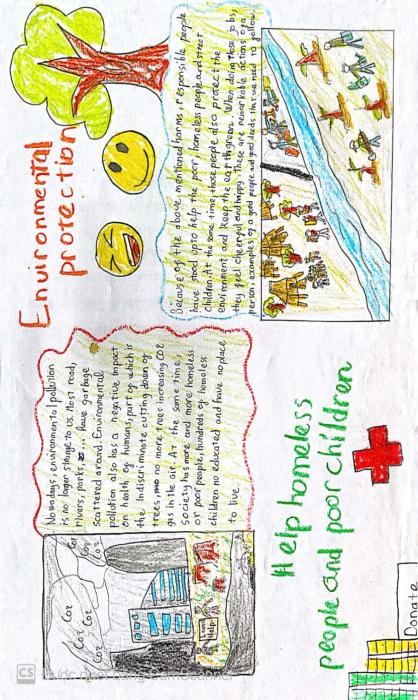 Environmental
protection
Nowadays, environmental pollution
is no longer strange to us. Most road,
rivers, parks, ... have garbage
scattered around. Environmental
pollution also has a negative impact
on health of humans, part of which is
the indiscriminate cutting down of
trees, no more trees increasing CO2
gas in the air. At the same time,
society has more and more homeless
or poor people, hundreds of homeless
children no educated and have no place
to live
Because of the above mentioned harms, responsible people
have stood up to help the poor, homeless people and street
children. At the same time, those people also protect the
environment and keep the earth green. When doing those jobs,
they feel cheerful and happy. These are remarkable actions of a
person, examples of a good people and good deeds that we need to follow
CO2
CO2
CO2
CO2
CO2
CO2
help!
Help homeless
people and poor children
Donate
CS